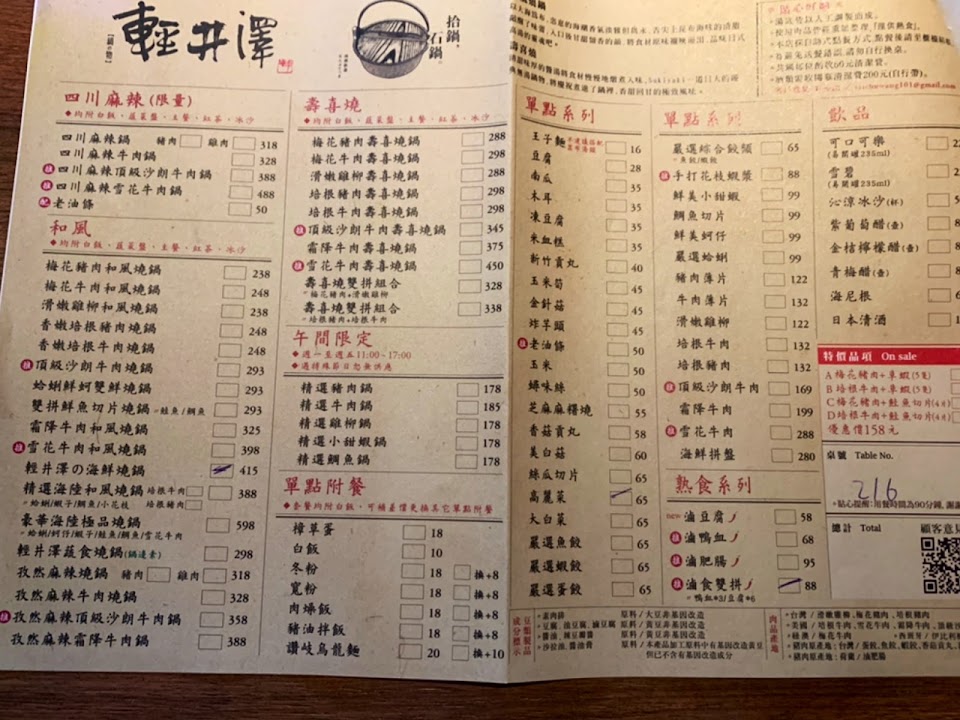 輕井澤
拾鍋
石鍋
四川麻辣(限量)
◆均附白飯、蔬菜盤、主餐、紅茶、冰沙
四川麻辣鍋 豬肉 雞肉 318
四川麻辣牛肉鍋 328
四川麻辣頂級沙朗牛肉鍋 388
四川麻辣雪花牛肉鍋 488
老油條 50
和風
◆均附白飯、蔬菜盤、主餐、紅茶、冰沙
梅花豬肉和風燒鍋 238
梅花牛肉和風燒鍋 248
滑嫩雞柳和風燒鍋 238
香嫩培根豬肉燒鍋 248
香嫩培根牛肉燒鍋 248
頂級沙朗牛肉燒鍋 293
蛤蜊鮮蚵雙鮮燒鍋 293
雙拼鮮魚切片燒鍋 鮭魚/鯛魚 293
霜降牛肉和風燒鍋 325
雪花牛肉和風燒鍋 398
輕井澤の海鮮燒鍋 415
精選海陸和風燒鍋 培根牛肉 388
蛤蜊/蝦子/鯛魚/小花枝 培根豬肉
豪華海陸極品燒鍋 598
蛤蜊/蚵仔/蝦子/鮭魚/鯛魚/雪花牛肉
輕井澤蔬食燒鍋(鍋邊素) 298
孜然麻辣燒鍋 豬肉 雞肉 318
孜然麻辣牛肉燒鍋 328
孜然麻辣頂級沙朗牛肉鍋 358
孜然麻辣霜降牛肉鍋 388
壽喜燒
◆均附白飯、蔬菜盤、主餐、紅茶、冰沙
梅花豬肉壽喜燒鍋 288
梅花牛肉壽喜燒鍋 298
滑嫩雞柳壽喜燒鍋 288
培根豬肉壽喜燒鍋 298
培根牛肉壽喜燒鍋 298
頂級沙朗牛肉壽喜燒鍋 345
霜降牛肉壽喜燒鍋 375
雪花牛肉壽喜燒鍋 450
壽喜燒雙拼組合 328
梅花豬肉+滑嫩雞柳
壽喜燒雙拼組合 338
培根豬肉+培根牛肉
午間限定
◆週一至週五11:00~17:00
◆遇特殊節日恕無供應
精選豬肉鍋 178
精選牛肉鍋 185
精選雞柳鍋 178
精選小甜蝦鍋 178
精選鯛魚鍋 178
單點附餐
◆套餐均附白飯,可補差價更換其它單點附餐
樟草蛋 18
白飯 10
冬粉 18 換+8
寬粉 18 換+8
肉燥飯 18 換+8
豬油拌飯 18 換+8
讚岐烏龍麵 20 換+10
單點系列
王子麵 16
豆腐 28
南瓜 35
木耳 35
凍豆腐 35
米血糕 35
新竹貢丸 40
玉米筍 45
金針菇 45
炸芋頭 45
老油條 50
玉米 50
蟳味絲 50
芝麻麻糬燒 55
香菇貢丸 58
美白菇 60
絲瓜切片 65
高麗菜 65
大白菜 65
嚴選魚餃 65
嚴選蝦餃 65
嚴選蛋餃 65
單點系列
嚴選綜合餃類 65
魚餃/蝦餃
手打花枝蝦漿 88
鮮美小甜蝦 99
鯛魚切片 99
鮮美蚵仔 99
嚴選蛤蜊 99
豬肉薄片 122
牛肉薄片 132
滑嫩雞柳 122
培根牛肉 132
培根豬肉 132
頂級沙朗牛肉 169
霜降牛肉 199
雪花牛肉 288
海鮮拼盤 280
熟食系列
new 滷豆腐 58
滷鴨血 68
滷肥腸 95
滷食雙拼 88
鴨血*3/豆腐*6
飲品
可口可樂
(易開罐235ml)
雪碧
(易開罐235ml)
沁涼冰沙(杯)
紫葡萄醋(壺)
金桔檸檬醋(壺)
青梅醋(壺)
海尼根
日本清酒
特價品項 On sale
A梅花豬肉+草蝦(5隻)
B培根牛肉+草蝦(5隻)
C梅花豬肉+鮭魚切片(4片)
D培根牛肉+鮭魚切片(4片)
優惠價158元
桌號 Table No.
216
貼心提醒:用餐時間為90分鐘,謝謝
總計 Total 顧客意見
豆類製品成分標示
原料/大豆非基因改造
豆腐、油豆腐、滷豆腐 原料/黃豆非基因改造
醬油、辣豆瓣醬 原料/黃豆非基因改造
沙拉油、醬油膏 原料/本產品加工原料中有基因改造黃豆
但已不含有基因改造成分
肉品產地